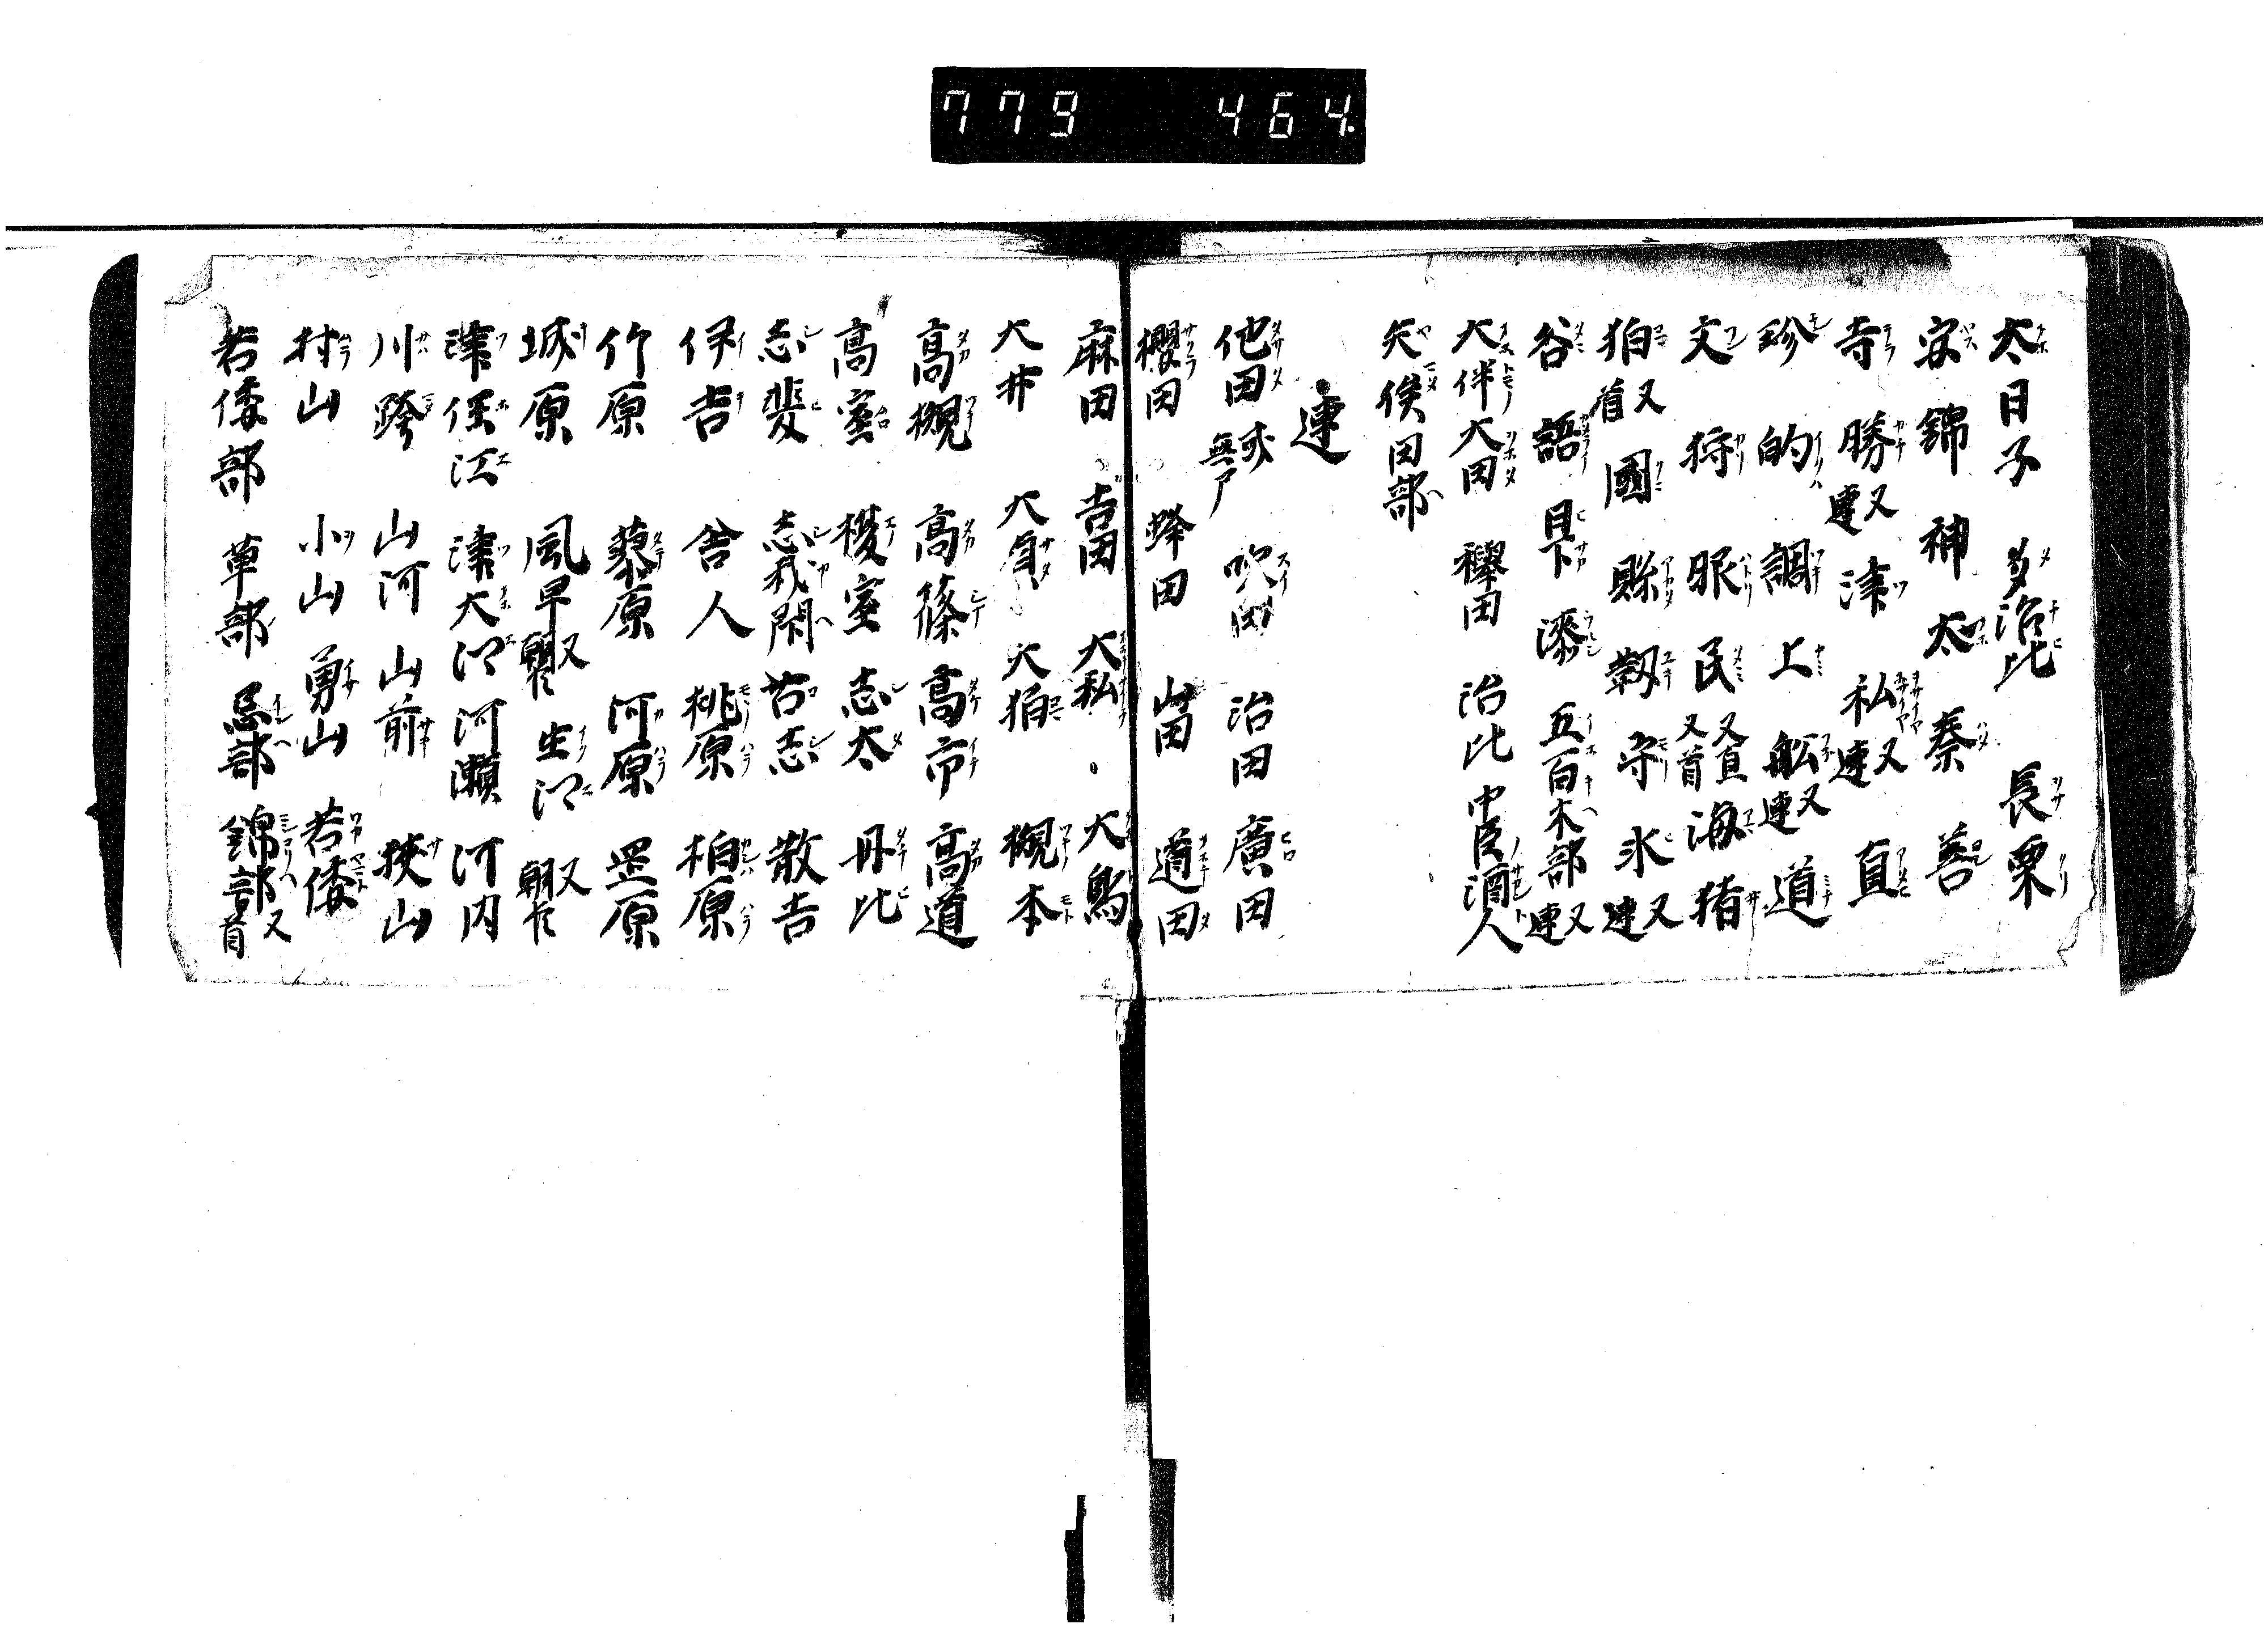 779 464
太日子 多治比 長栗
安 錦 神 太 秦 善
寺 勝又連 津 私又連 直
珍 的 調 上 舩又連 道
文 狩 服 民又直又首 海 猪
狛又首 國 縣 靱 守 氷又連
谷 語 日下 漆 五百木部又連
大伴大田 稗田 治比 中臣酒人
矢俟田部
連
他田或無尸 吹田 治田 廣田
櫻田 蜂田 山田 道田
麻田 吉田 大私 大鳥
大井 大貞 大狛 槻本
高槻 高篠 高市 高道
高室 榎室 志太 丹比
志斐 志我閇 古志 散吉
伊吉 舎人 桃原 柏原
竹原 藜原 河原 笠原
城原 風早又朝臣 生江又朝臣
津任江 津大江 河瀬 河内
川跨 山河 山前 挾山
村山 小山 勇山 若倭
若倭部 草部 忌部 錦部又首